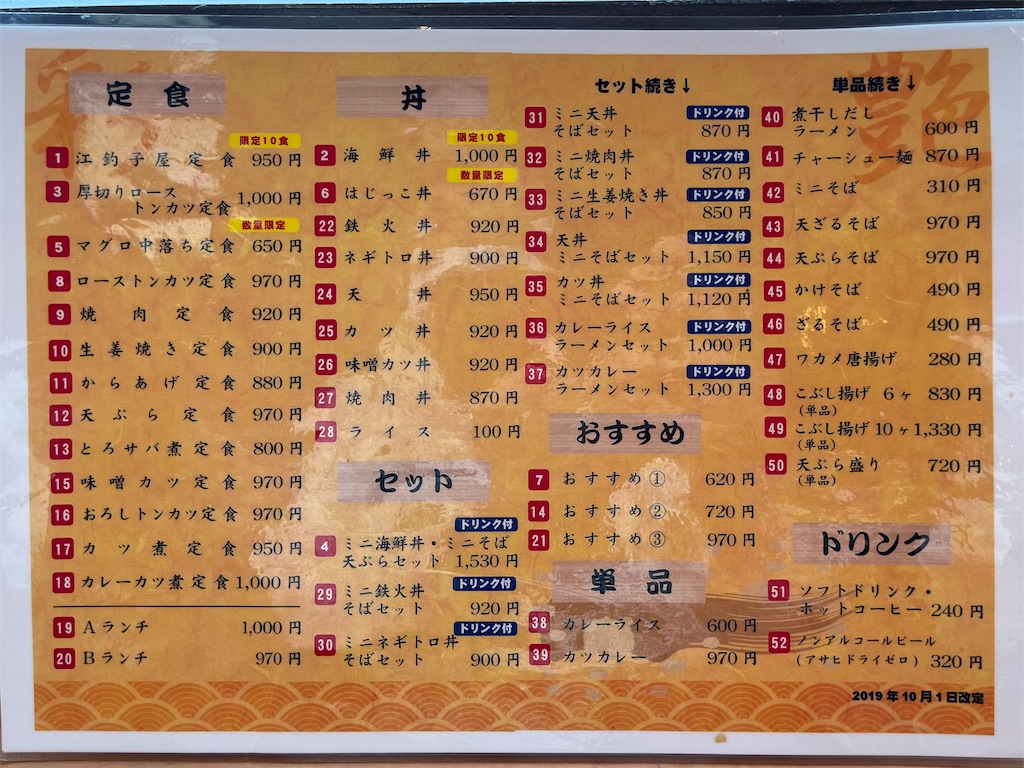 定食
限定10食
1 江釣子屋定食 950円
3 厚切りロース
トンカツ定食 1,000円
数量限定
5 マグロ中落ち定食 650円
8 ローストンカツ定食 970円
9 焼肉定食 920円
10 生姜焼き定食 900円
11 からあげ定食 880円
12 天ぷら定食 970円
13 とろサバ煮定食 800円
15 味噌カツ定食 970円
16 おろしトンカツ定食 970円
17 カツ煮定食 950円
18 カレーカツ煮定食 1,000円
19 Aランチ 1,000円
20 Bランチ 970円
丼
限定10食
2 海鮮丼 1,000円
数量限定
6 はじっこ丼 670円
22 鉄火丼 920円
23 ネギトロ丼 900円
24 天丼 950円
25 カツ丼 920円
26 味噌カツ丼 920円
27 焼肉丼 870円
28 ライス 100円
セット
ドリンク付
4 ミニ海鮮丼・ミニそば
天ぷらセット 1,530円
ドリンク付
29 ミニ鉄火丼
そばセット 920円
ドリンク付
30 ミニネギトロ丼
そばセット 900円
セット続き↓
31 ミニ天丼 ドリンク付
そばセット 870円
32 ミニ焼肉丼 ドリンク付
そばセット 870円
33 ミニ生姜焼き丼 ドリンク付
そばセット 850円
34 天丼 ドリンク付
ミニそばセット 1,150円
35 カツ丼 ドリンク付
ミニそばセット 1,120円
36 カレーライス ドリンク付
ラーメンセット 1,000円
37 カツカレー ドリンク付
ラーメンセット 1,300円
おすすめ
7 おすすめ① 620円
14 おすすめ② 720円
21 おすすめ③ 970円
単品
38 カレーライス 600円
39 カツカレー 970円
単品続き↓
40 煮干しだし
ラーメン 600円
41 チャーシュー麺 870円
42 ミニそば 310円
43 天ざるそば 970円
44 天ぷらそば 970円
45 かけそば 490円
46 ざるそば 490円
47 ワカメ唐揚げ 280円
48 こぶし揚げ 6ヶ 830円
(単品)
49 こぶし揚げ 10ヶ 1,330円
(単品)
50 天ぷら盛り 720円
(単品)
ドリンク
51 ソフトドリンク・
ホットコーヒー 240円
52 ノンアルコールビール
(アサヒドライゼロ) 320円
2019年10月1日改定